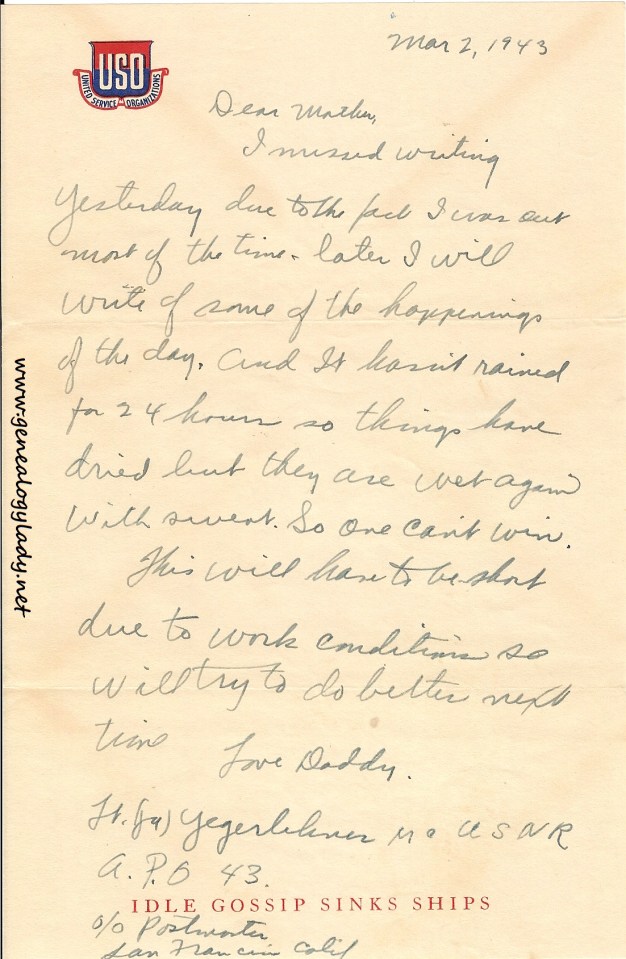 Mar 2, 1943
USO
UNITED SERVICE ORGANIZATIONS
Dear Mother,
I missed writing
Yesterday due to the fact I was out
most of the time. later I will
write of some of the happenings
of the day. And It hasn't rained
for 24 hours so things have
dried but they are wet again
with sweat. So one can't win.
This will have to be short
due to work conditions so
will try to do better next
time
Love Daddy.
Lt. (jg) Yegerlehner USNR
A.P.O 43.
IDLE GOSSIP SINKS SHIPS
c/o Postmaster
San Francisco Calif
www.genealogylady.net